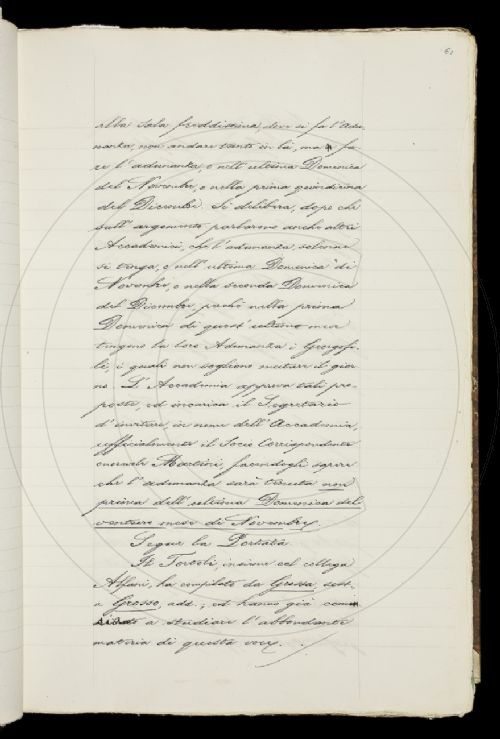 61
alla Sala freddissima, dove si fa l'Adu-
nanza, non andare tanto in là, ma fa-
re l'adunanza, o nell'ultima Domenica
del Novembre, o nella prima quindicina
del Dicembre. Si delibera, dopo che
sull'argomento parlarono anche altri
Accademici, che l'adunanza solenne
si tenga, o nell'ultima Domenica di
Novembre, o nella seconda Domenica
del Dicembre, poiché nella prima
Domenica di quest'ultimo mese
tengono la loro Adunanza i Georgofi-
li, i quali non vogliono mutare il gior-
no. L'Accademia approva tali pro-
poste, ed incarica il Segretario
d'invitare, in nome dell'Accademia,
ufficialmente il Socio Corrispondente
generale facendogli sapere
che l'adunanza sarà tenuta non
prima dell'ultima Domenica del
venturo mese di Novembre.
Segue la Tornata
Il Tortoli, insieme col collega
Alfani, ha compilato da Grossa, sost.
a Grosso, add.; ed hanno già comin
a studiare l'abbondante
materia di questa voce.